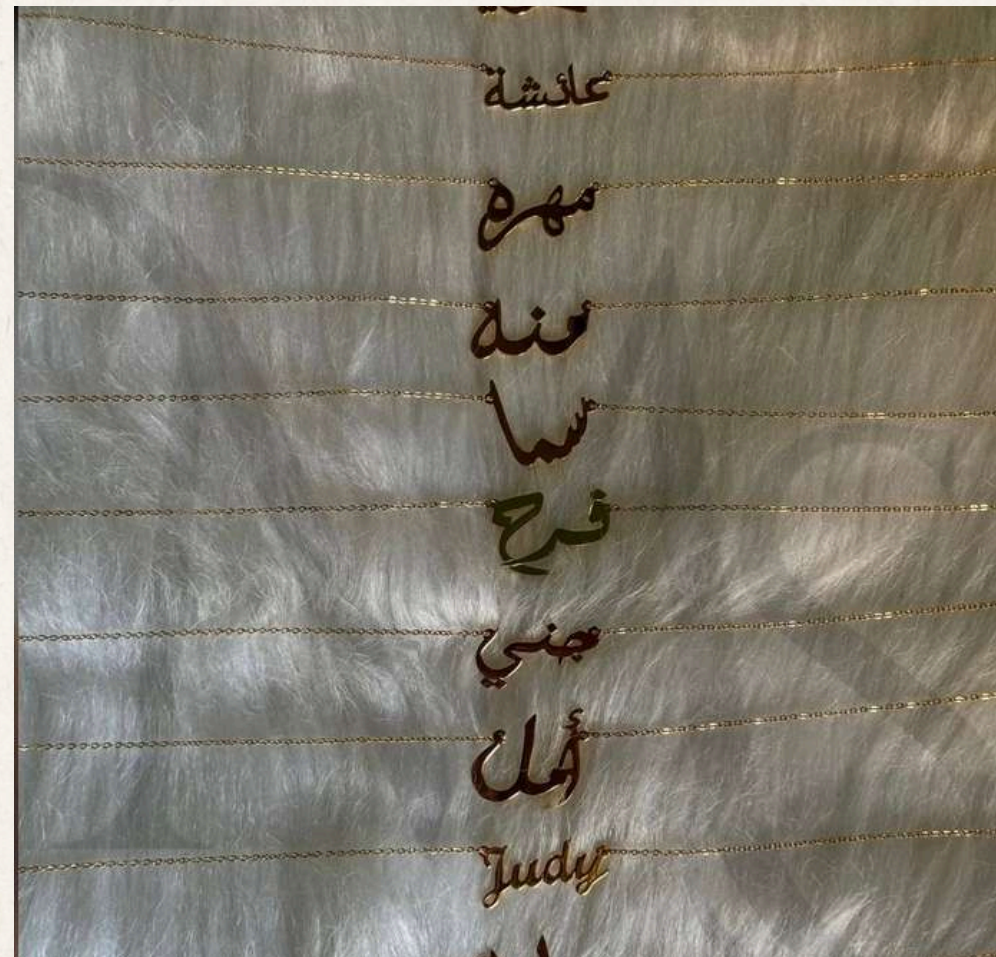 عائشة
مهره
منه
سما
فرح
جني
أمل
Judy